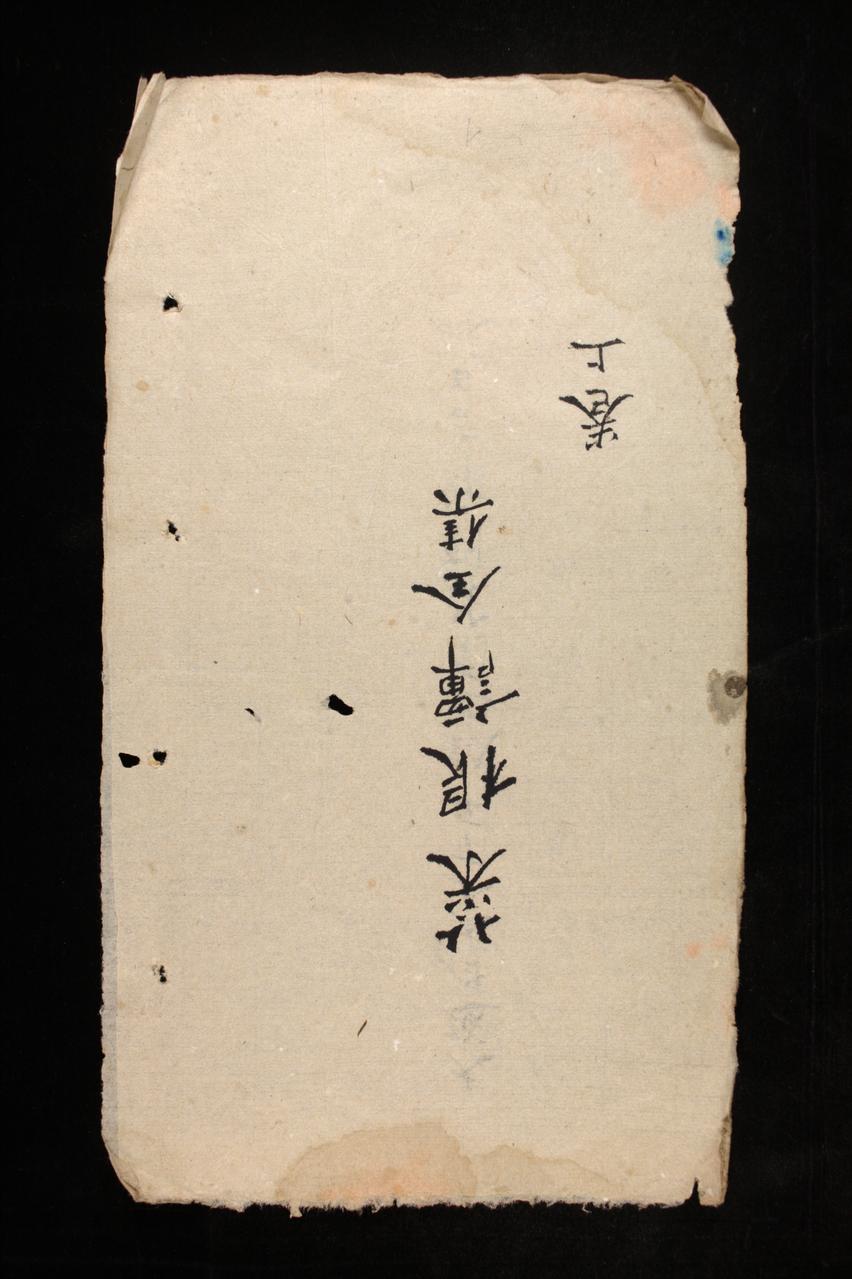 菜根譚全集
卷上